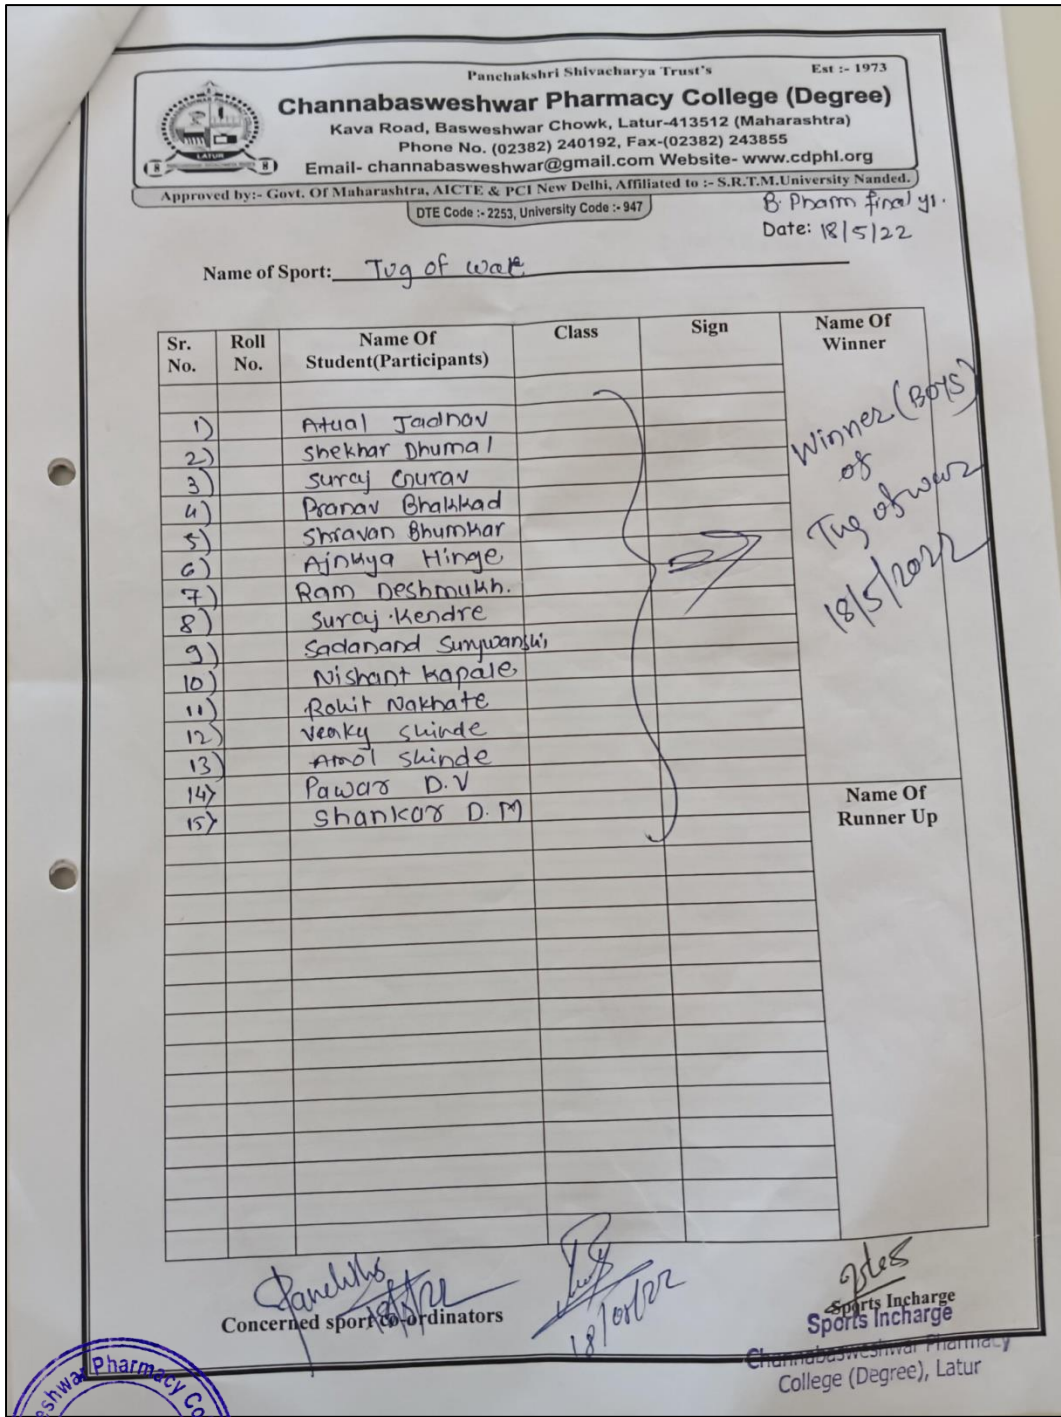 Panchakshri Shivacharya Trust's
Est :- 1973
Channabasweshwar Pharmacy College (Degree)
Kava Road, Basweshwar Chowk, Latur-413512 (Maharashtra)
Phone No. (02382) 240192, Fax-(02382) 243855
Email- channabasweshwar@gmail.com Website- www.cdphl.org
LATUR
Approved by:- Govt. Of Maharashtra, AICTE & PCI New Delhi, Affiliated to :- S.R.T.M.University Nanded.
DTE Code :- 2253, University Code :- 947
B. Pharm final yr.
Date: 18/5/22
Name of Sport: Tug of war
Sr. No. Roll No. Name Of Student(Participants) Class Sign Name Of Winner
1) Atual Jadhav
2) Shekhar Dhumal
3) Suraj Gurav
4) Pranav Bhakkad
5) Shravan Bhumkar
6) Ajnkya Hinge
7) Ram Deshmukh.
8) Suraj Kendre
9) Sadanand Surywanshi
10) Nishant Kapale
11) Rohit Nakhate
12) Venky Shinde
13) Amol Shinde
14) Pawar D.V
15) Shankar D.M
Winner (Boys)
of
Tug of war
18/5/2022
Name Of
Runner Up
18/5/22
18/05/22
Concerned sport co-ordinators
Sports Incharge
Sports Incharge
Channabasweshwar Pharmacy
College (Degree), Latur
eshwar Pharmacy Co